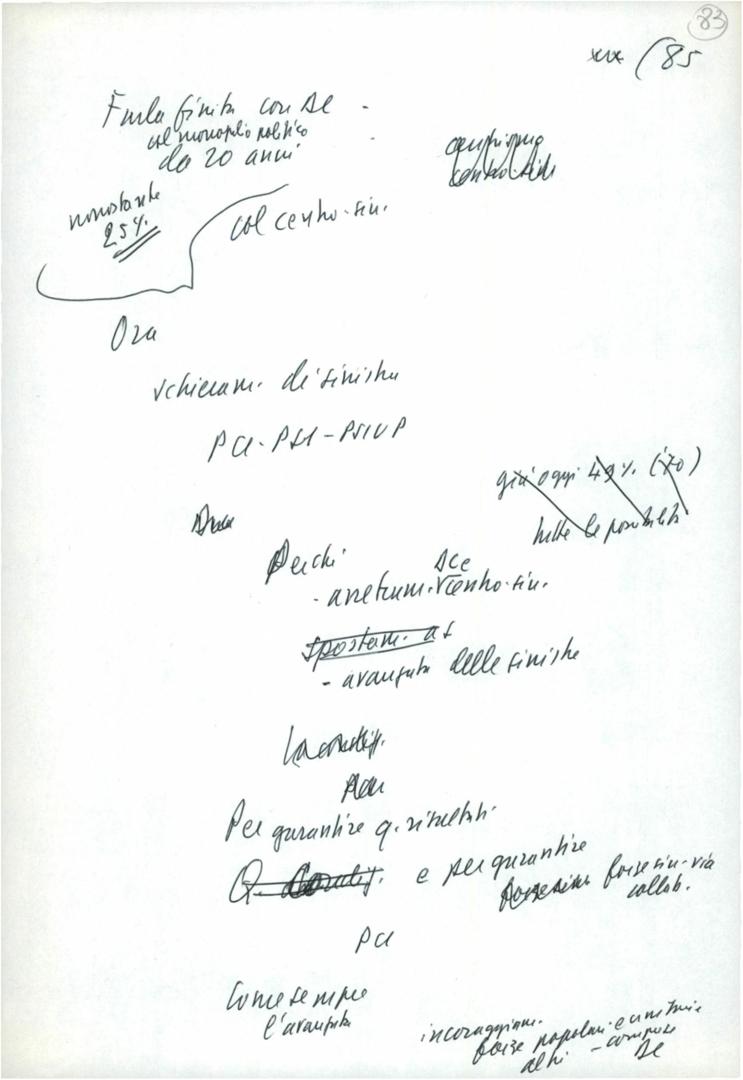 83
xix (85
Farla finita con DC -
col monopolio politico -
da 20 anni
centrismo
centro-sin
nonostante
25%.
col centro-sin.
Ora
schieram. di sinistra
PCI-PSI-PSIUP
già oggi 49%. ('70)
tutte le possibilità
Perché
DC e
- arretram. centro-sin.
spostam. as
- avanzata delle sinistre
La condiz.
Per garantire q. risultati
Q. condiz. e per garantire
forze sin - via
collab.
PCI
Come sempre
l'avanzata
incoraggiam.
forze popolari e unitarie
altri - compreso
DC